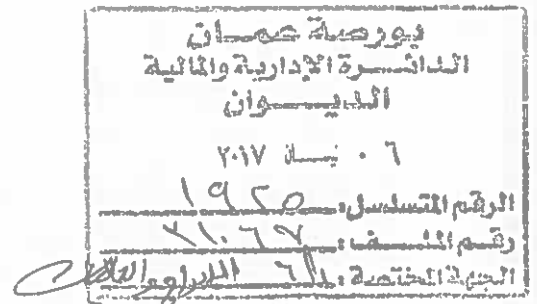 بورصة عمان
الدائرة الإدارية والمالية
الديوان
٠٦ نيسان ٢٠١٧
الرقم المتسلسل: ١٩٢٥
رقم الملف:
الجهة المختصة: